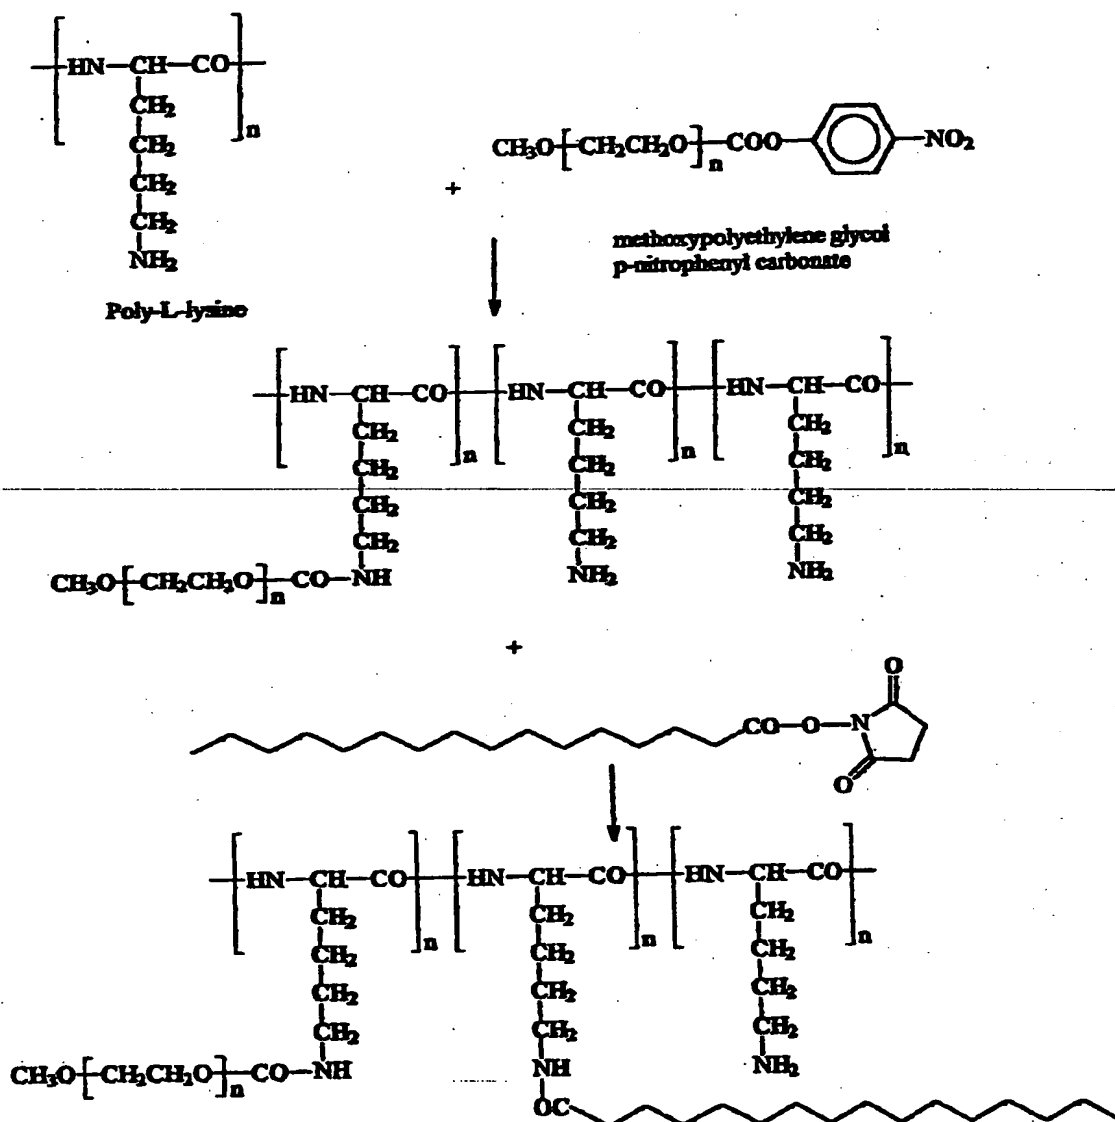 HN—CH—CO
n
CH₂
CH₂
CH₂
CH₂
NH₂
Poly-L-lysine
+
CH₃O CH₂CH₂O n COO NO₂
methoxypolyethylene glycol
p-nitrophenyl carbonate
HN—CH—CO n HN—CH—CO n HN—CH—CO n
CH₂ CH₂ CH₂
CH₂ CH₂ CH₂
CH₂ CH₂ CH₂
CH₂ CH₂ CH₂
CH₃O CH₂CH₂O n CO—NH NH₂ NH₂
+
O
CO—O—N
O
HN—CH—CO n HN—CH—CO n HN—CH—CO n
CH₂ CH₂ CH₂
CH₂ CH₂ CH₂
CH₂ CH₂ CH₂
CH₂ CH₂ CH₂
CH₃O CH₂CH₂O n CO—NH NH NH₂
OC